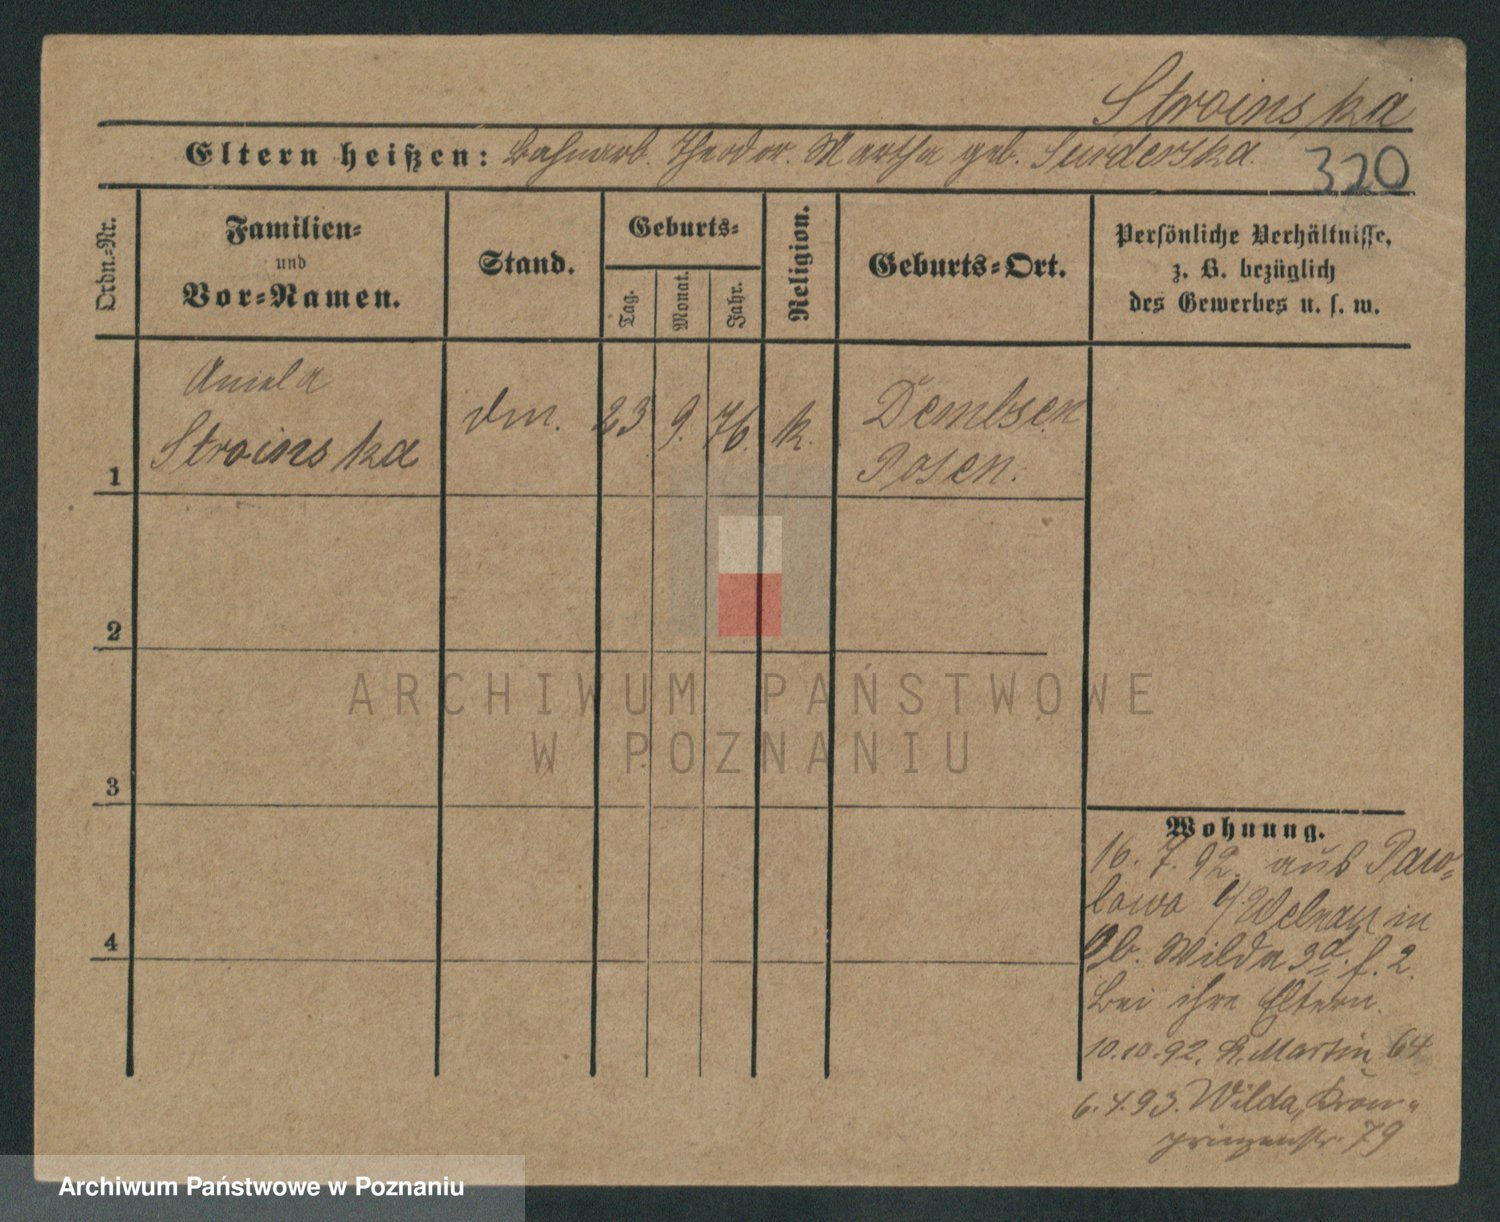 Stroinska
Eltern heißen: Bahnarb. Theodor. Martha geb.
320
Ordn.-Nr.
Familien-
und
Vor-Namen.
Stand.
Geburts-
Tag.
Monat.
Jahr.
Religion.
Geburts-Ort.
Persönliche Verhältnisse,
z. B. bezüglich
des Gewerbes u. s. w.
Aniela
Stroinska
1
23
9.
76.
k.
Dembsen
Posen.
2
3
4
ARCHIWUM PAŃSTWOWE
W POZNANIU
Wohnung.
16. 7. 92. aus Paw-
lowo b/Welnau in
Ob. Wilda 3d. f. 2.
bei ihre Eltern.
10.10.92. St. Martin 64
6.4.93. Wilda, Kron-
prinzenstr. 79
Archiwum Państwowe w Poznaniu